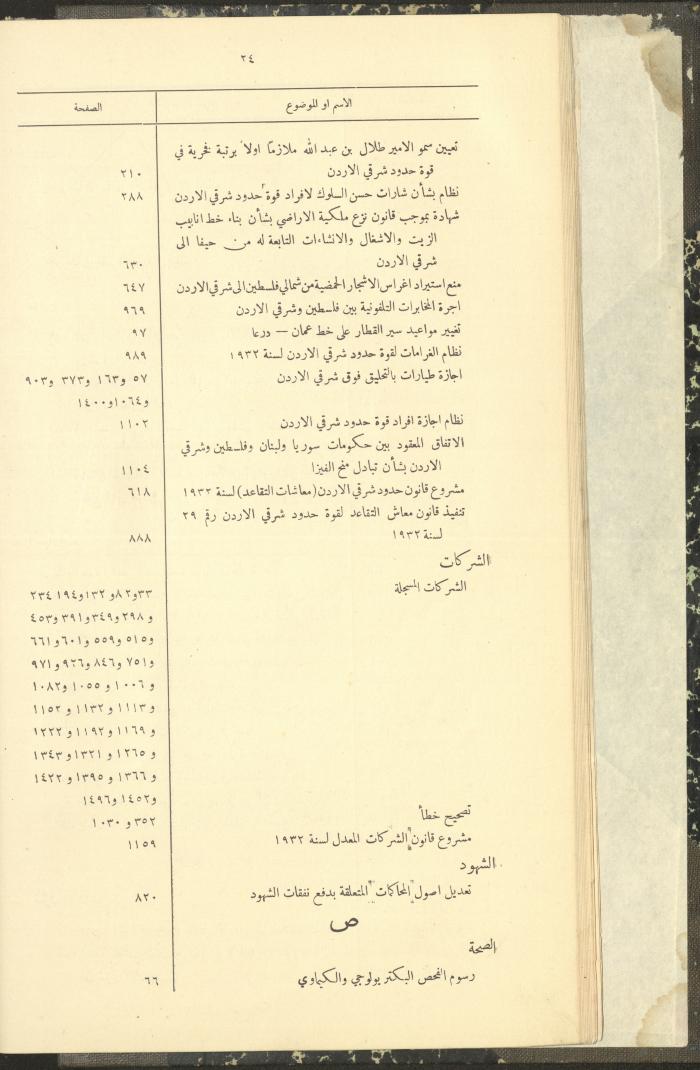 ٢٤
الاسم او الموضوع الصفحة
تعيين سمو الامير طلال بن عبد الله ملازماً اولاً برتبة فخرية في
قوة حدود شرقي الاردن ٢١٠
نظام بشأن شارات حسن السلوك لافراد قوة حدود شرقي الاردن ٢٨٨
شهادة بموجب قانون نزع ملكية الاراضي بشأن بناء خط انابيب
الزيت والاشغال والانشاءات التابعة له من حيفا الى
شرقي الاردن ٦٣٠
منع استيراد اغراس الاشجار الحمضية من شمالي فلسطين الى شرقي الاردن ٦٤٧
اجرة المخابرات التلفونية بين فلسطين وشرقي الاردن ٩٦٩
تغيير مواعيد سير القطار على خط عمان – درعا ٩٧
نظام الغرامات لقوة حدود شرقي الاردن لسنة ١٩٣٢ ٩٨٩
اجازة طيارات بالتحليق فوق شرقي الاردن ٥٧ و١٦٣ و٣٧٣ و٩٠٣
و١٠٦٤ و١٤٠٠
نظام اجازة افراد قوة حدود شرقي الاردن ١١٠٢
الاتفاق المعقود بين حكومات سوريا ولبنان وفلسطين وشرقي
الاردن بشأن تبادل منح الفيزا ١١٠٤
مشروع قانون حدود شرقي الاردن (معاشات التقاعد) لسنة ١٩٣٢ ٦١٨
تنفيذ قانون معاش التقاعد لقوة حدود شرقي الاردن رقم ٢٩
لسنة ١٩٣٢ ٨٨٨
الشركات
الشركات المسجلة ٣٣ و٨٢ و١٣٢ و١٩٤ ٢٣٤
و ٢٩٨ و٣٤٩ و٣٩١ و٤٥٣
و٥١٥ و٥٥٩ و٦٠١ و٦٦١
و٧٥١ و٨٤٦ و٩٢٦ و٩٧١
و ١٠٠٦ و ١٠٥٥ و١٠٨٢
و١١١٣ و ١١٣٢ و ١١٥٢
و ١١٦٩ و ١١٩٢ و ١٢٢٢
و ١٢٦٥ و ١٣٢١ و١٣٤٣
و ١٣٦٦ و ١٣٩٥ و ١٤٢٢
و١٤٥٢ و١٤٩٦
تصحيح خطأ ٣٥٢ و ١٠٣٠
مشروع قانون "الشركات المعدل لسنة ١٩٣٢ ١١٥٩
الشهود
تعديل اصول "المحاكمات" المتعلقة بدفع نفقات الشهود ٨٢٠
ص
الصحة
رسوم الفحص البكتريولوجي والكيماوي ٦٦